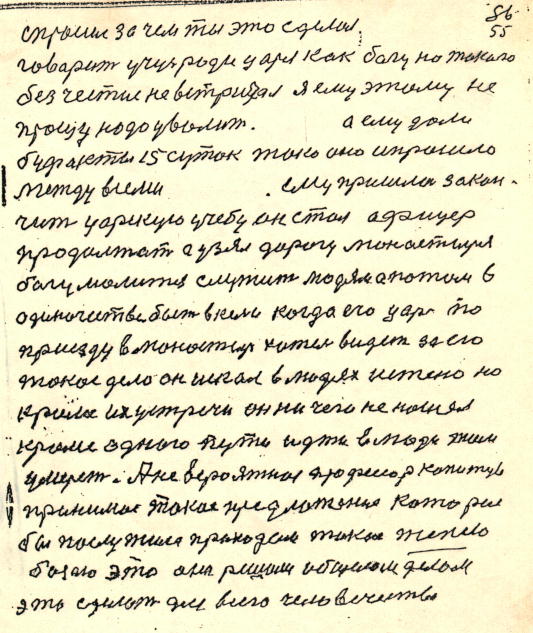 86
55
спросил зачем ты это сделал
говарит учу ради царя как богу но такого
без чистие не встричал я ему этому не
прощу надо уволит. а ему дали
буд 15 суток тако оно и прошло
между всеми . ему пришлос закан-
чит царскую учебу он стал афицер
продолжат а узял дорогу монастыря
богу молится служит людям а потом в
одиночестве быт в кели когда его цар по
приезду в монастыр хотел видет за его
такое дело он искал в людях истено но
кроме их устречи он ничего не нашел
кроме одного пути идти в люди там
умерет. А не вероятная профессор
принимае такое предложение которое
бы послужило приходом такое тепело
богаю это они решили общим делом
это сделат для всего человечества